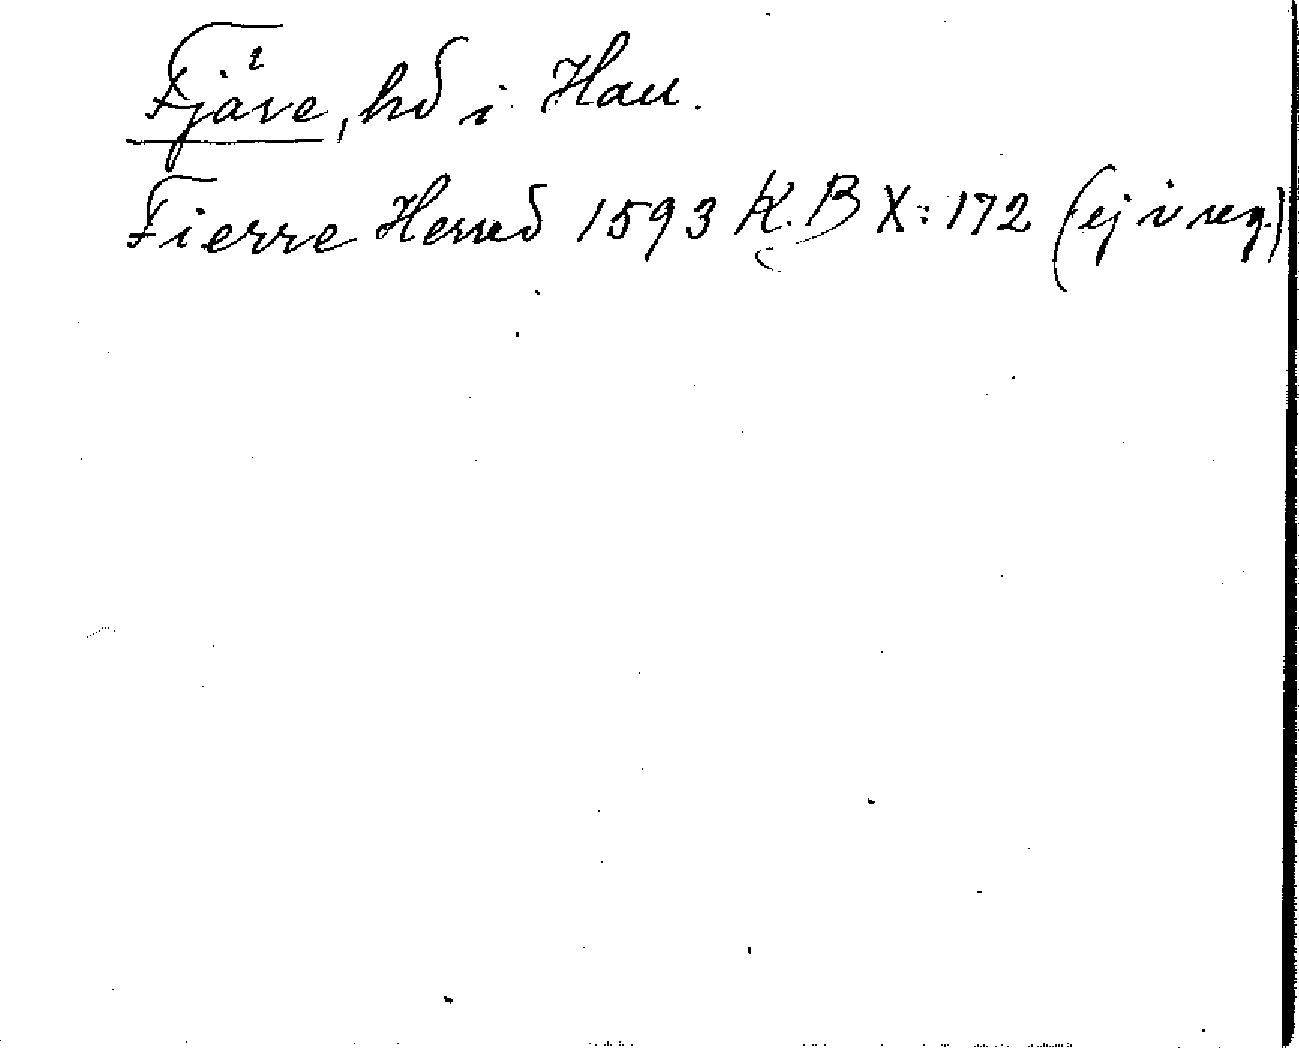 Fjäre, hd i Hall.
Fierre Herred 1593 K.B X:172 (ej i reg.)